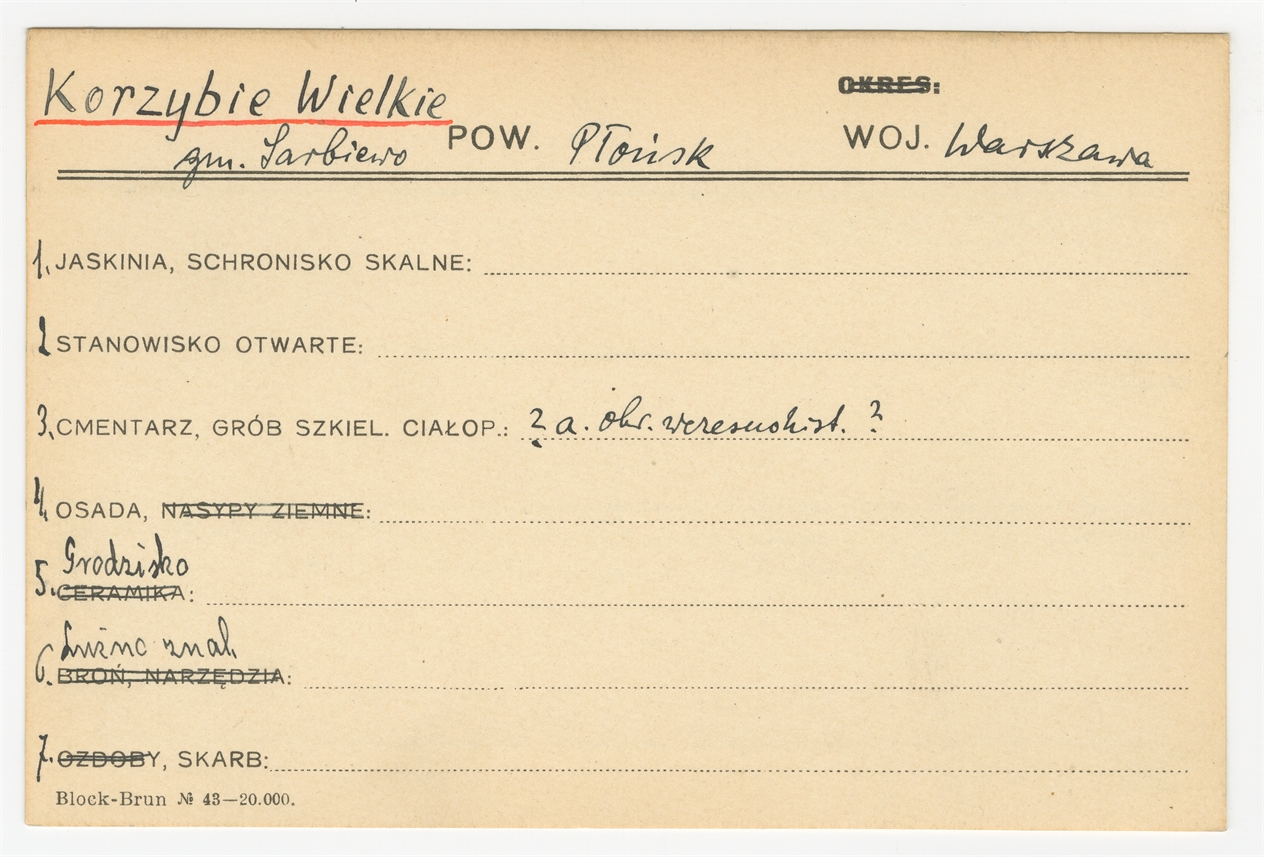 Korzybie Wielkie
OKRES:
gm. Sarbiewo POW. Płońsk WOJ. Warszawa
1. JASKINIA, SCHRONISKO SKALNE:
2 STANOWISKO OTWARTE:
3. CMENTARZ, GRÓB SZKIEL. CIAŁOP.: ? a. okr. wczesnohist. ?
4. OSADA, NASYPY ZIEMNE:
Grodzisko
5. CERAMIKA:
Luźne znal.
6. BROŃ, NARZĘDZIA:
7. OZDOBY, SKARB:
Block-Brun № 43—20.000.